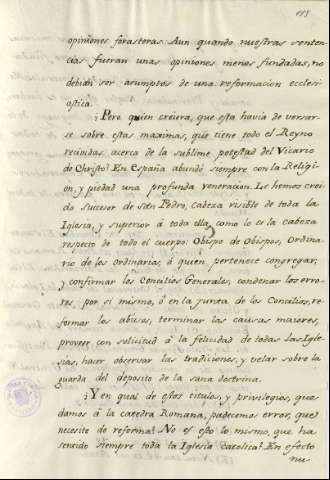 118
opiniones forasteras. Aun quando nuestras senten-
cias fueran unas opiniones menos fundadas, no
debian ser asumptos de una reformacion eccle-
siastica.
¿Pero quien creiera, que esta havia de versar-
se sobre estas maximas, que tiene todo el Reyno
recividas acerca de la sublime potestad del Vicario
de Christo? En España abundó siempre con la Religi-
on, y piedad una profunda veneracion. Le hemos creí-
do succesor de san Pedro, cabeza visible de toda la
Iglesia, y superior á toda ella, como lo es la cabeza
respecto de todo el cuerpo: Obispo de Obispos, Ordina-
rio de los ordinarios, á quien pertenece congregar,
y confirmar los Concilios Generales, condenar los erro-
res, por si mismo, ó en la junta de los Concilios, re-
formar los abusos, terminar las causas maiores,
proveer con solicitud á la felicidad de todas las Igle-
sias, hacer observar las tradiciones, y velar sobre la
guarda del deposito de la sana doctrina.
¿Y en qual de estos titulos, y privilegios, que
damos á la catedra Romana, padecemos error, que
necesite de reforma? No es esto lo mismo, que ha
sentido siempre toda la Iglesia catolica? En efecto